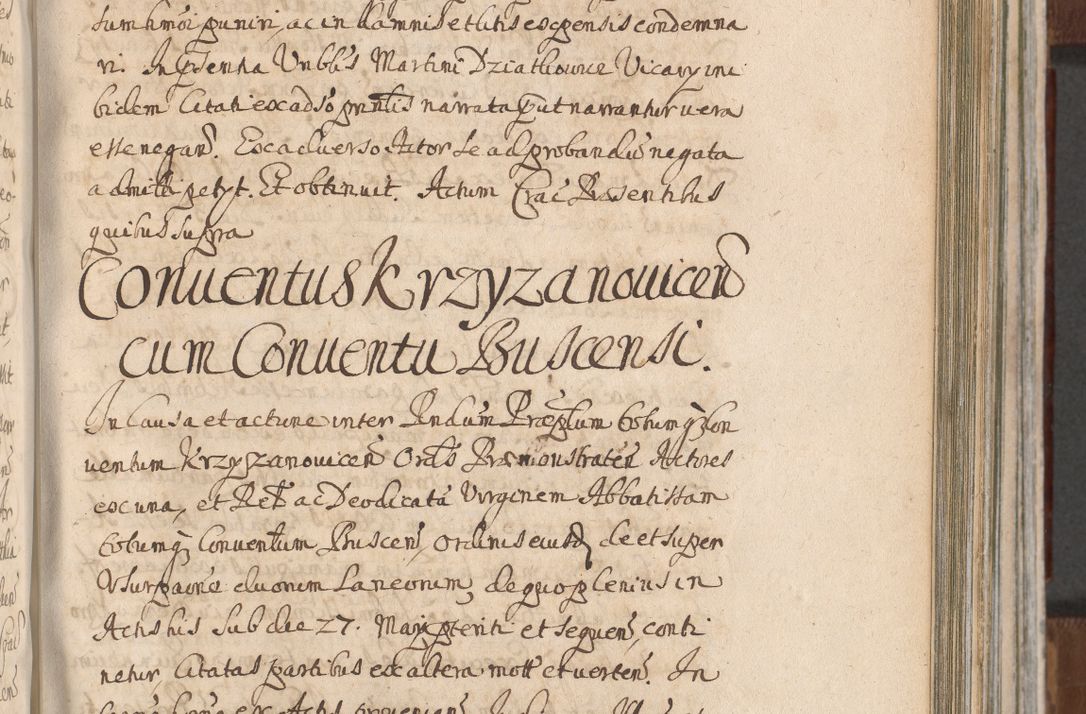 sum hmoi puniri, ac in damnis et litis expensis condemna
ri. In psentia Vnbbs Martini Dziatkowic Vicary ini
bidem Citati ex adso gnrlis narrata put narrantur vera
esse negan. Ex aduerso Actor se ad probandũ negata
admitti petyt. Et obtinuit. Actum Crac Præsentibus
quibus supra
Conuentus Krzyzanouicen
cum Conuentu Buscensi.
In Causa et actione inter Rndum Præplum totumq Con
uentum Krzyszanouicen Ordis Præmonstraten Actores
ex una, et Rel ac Deo dicatã Virginem Abbatissam
totumq Conuentum Buscen, ordinis eiusd, de et super
Vsurpaone duorum Laneorum, de quo plenius in
Actis his sub die 27. May pteriti et sequen, conti
netur, Citatas partibus ex altera mott et verten. In